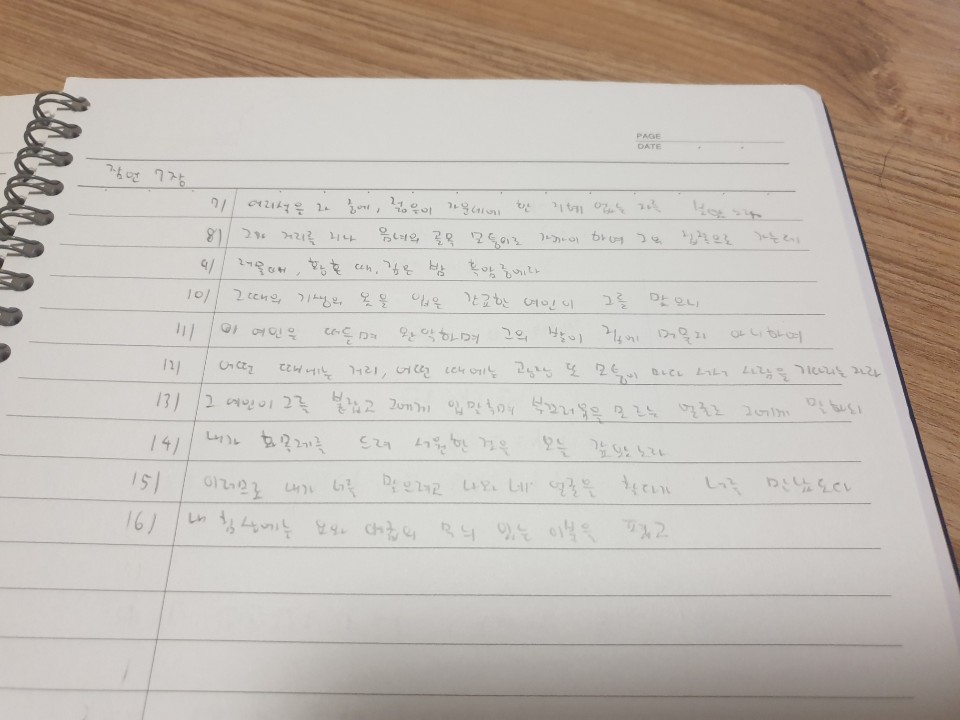 PAGE
DATE
잠언 7장
7/ 어리석은 자 중에, 젊은이 가운데에 한 지혜 없는 자를
8/ 그가 거리를 지나 음녀의 골목 모퉁이로 가까이 하여 그의 집쪽으로 가는데
9/ 저물 때, 황혼 때, 깊은 밤 흑암중에라
10/ 그때의 기생의 옷을 입은 간교한 여인이 그를 맞으니
11/ 이 여인은 떠들며 완악하며 그의 발이 집에 머물지 아니하여
12/ 어떤 때에는 거리, 어떤 때에는 광장 또 모퉁이 마다 서서 사람을 기다리는 자라
13/ 그 여인이 그를 붙잡고 그에게 입맞추며 부끄러움을 모르는 얼굴로 그에게 말하되
14/ 내가 화목제를 드려 서원한 것을 오늘 갚았노라
15/ 이러므로 내가 너를 맞으려고 나와 네 얼굴을 찾다가 너를 만났도다
16/ 내 침상에는 요와 애굽의 무늬 있는 이불을 폈고